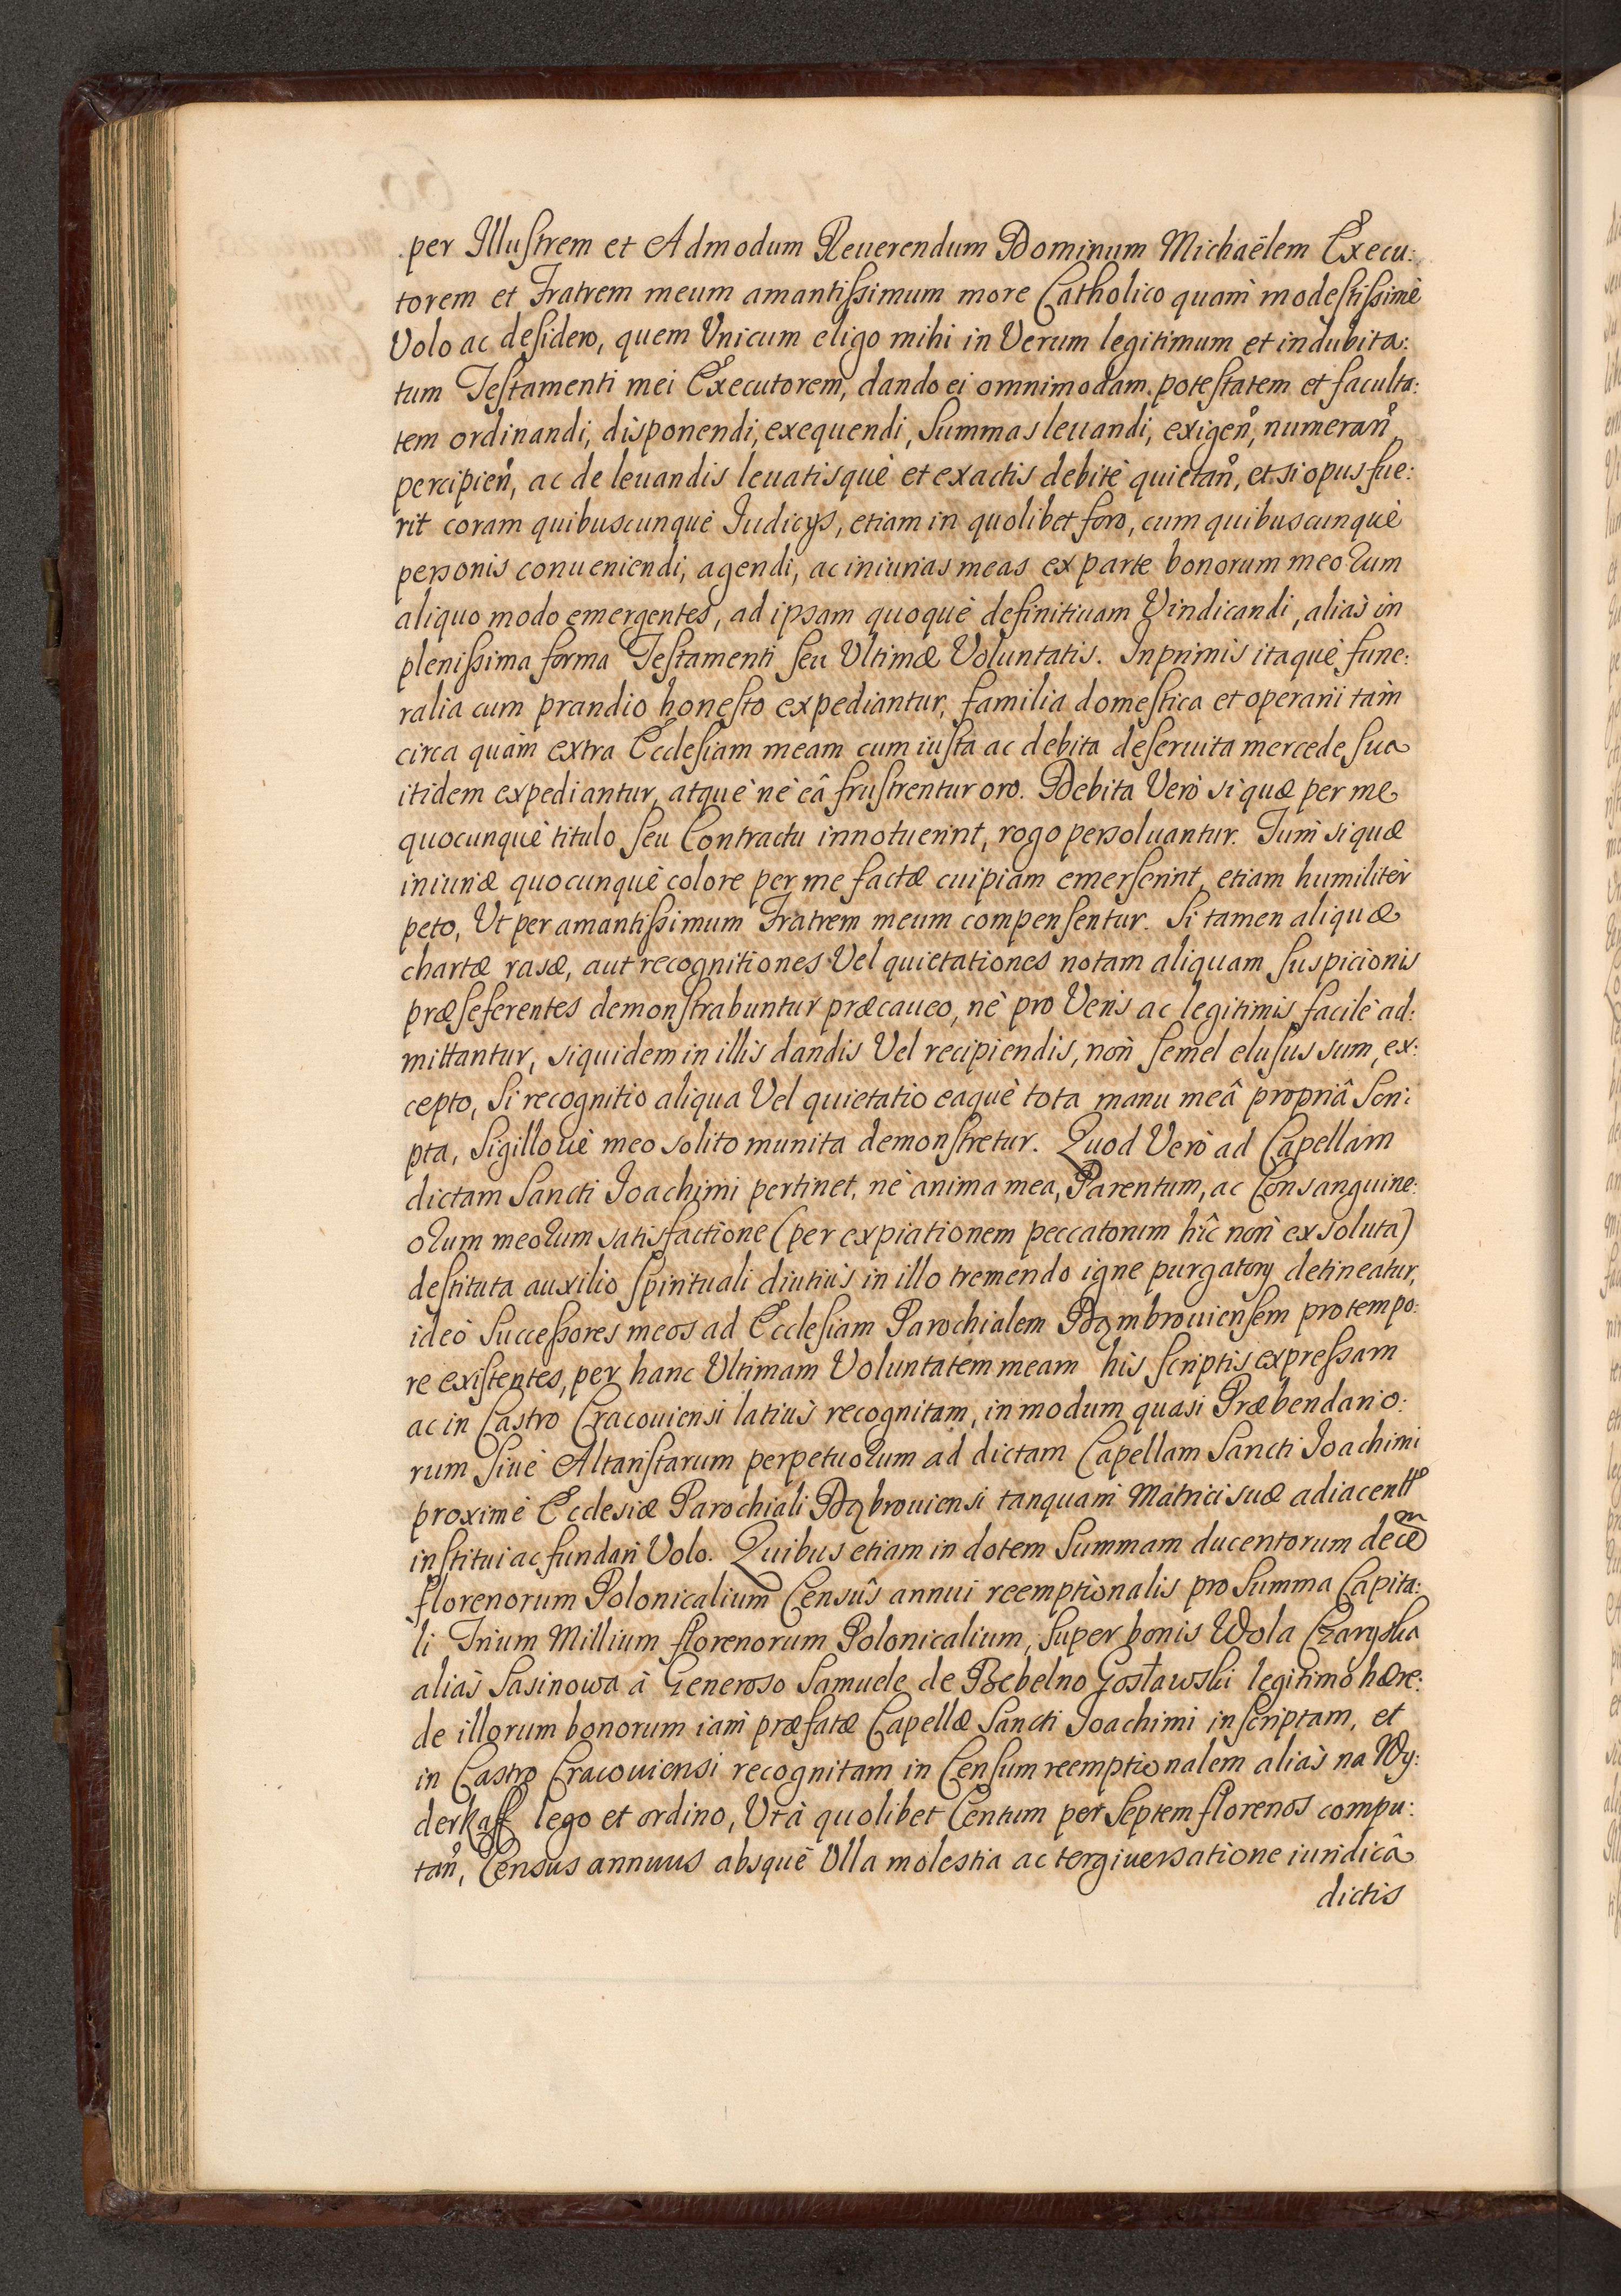 per Illustrem et Admodum Reuerendum Dominum Michaëlem Execu:
torem et Fratrem meum amantissimum more Catholico quam̀ modestissimè
Volo ac desidero, quem Vnicum eligo mihi in Verum legitimum et indubita:
tum Testamenti mei Executorem, dando ei omnimodam potestatem et faculta:
tem ordinandi, disponendi, exequendi, Summas leuandi, exigen̊, numeran̊,
percipien̊, ac de leuandis leuatisquè et exactis debitè quietan̊, et si opus fue:
rit coram quibuscunquè Iudicijs, etiam in quolibet foro, cum quibuscunquè
personis conueniendi, agendi, ac iniurias meas ex parte bonorum meoꝝum
aliquo modo emergentes, ad ipsam quoquè definitiuam Vindicandi, aliàs in
plenissima forma Testamenti seu Vltimæ Voluntatis. Inprimis itaquè fune:
ralia cum prandio honesto expediantur, familia domestica et operarii tàm
circa quàm extra Ecclesiam meam cum iusta ac debita deseruita mercede sua
itidem expediantur, atquè nè eâ frustrentur oro. Debita Verò si quæ per me
quocunquè titulo seu Contractu innotuerint, rogo persoluantur. Tum̀ si quæ
iniuriæ quocunquè colore per me factæ cuipiam emerserint, etiam humilitèr
peto, Vt per amantissimum Fratrem meum compensentur. Si tamen aliquæ
chartæ rasæ, aut recognitiones Vel quietationes notam aliquam suspicionis
præseferentes demonstrabuntur præcaueo, nè pro Veris ac legitimis facilè ad:
mittantur, siquidem in illis dandis Vel recipiendis, non̄ semel elusus sum, ex:
cepto, Si recognitio aliqua Vel quietatio eaquè tota manu meâ propriâ Scri:
pta, Sigillouè meo solito munita demonstretur. Quod Verò ad Capellam
dictam Sancti Ioachimi pertinet, nè anima mea, Parentum, ac Consanguine:
oꝝum meoꝝum satisfactione (per expiationem peccatorum hîc non̄ exsoluta)
destituta auxilio spirituali diutiùs in illo tremendo igne purgatorij detineatur,
ideò Successores meos ad Ecclesiam Parochialem Dąmbrouiensem pro tempo:
re existentes, per hanc Vltimam Voluntatem meam his scriptis expressam
ac in Castro Cracouiensi latiùs recognitam, in modum quasi Præbendario:
rum Siuè Altaristarum perpetuoꝝum ad dictam Capellam Sancti Ioachimi
proximè Ecclesiæ Parochiali Dąbrouiensi tanquam̀ Matrici suæ adiacentē
institui ac fundari Volo. Quibus etiam in dotem Summam ducentorum decem
florenorum Polonicalium Censûs annui reemptionalis pro Summa Capita:
li Trium Millium florenorum Polonicalium, super bonis Wola Czaryska
aliàs Sasinowa à Generoso Samuele de Bebelno Gosławski legitimo hære:
de illorum bonorum iam̀ præfatæ Capellæ Sancti Ioachimi inscriptam, et
in Castro Cracouiensi recognitam in Censum reemptionalem aliàs na Wy:
derkaff lego et ordino, Vt à quolibet Centum per Septem florenos compu:
tan̊, Census annuus absquè Vlla molestia ac tergiuersatione iuridicâ
dictis